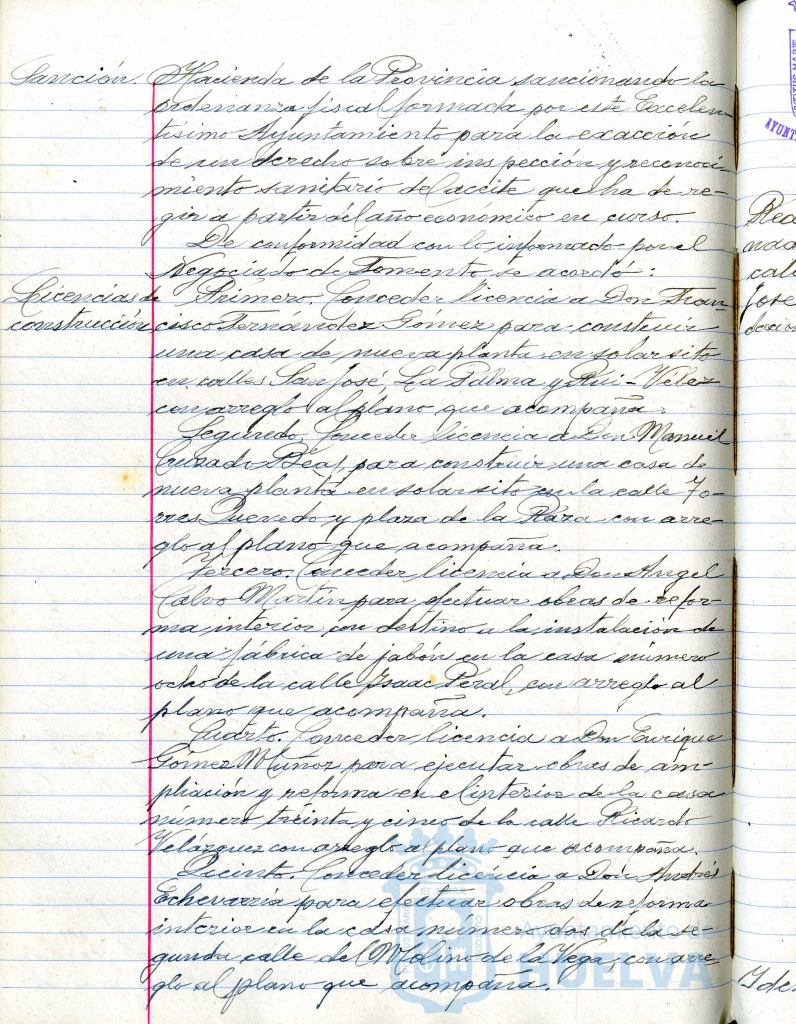 Sanción. Hacienda de la Provincia sancionando la
ordenanza fiscal formada por este Excelen-
tísimo Ayuntamiento para la exacción
de un derecho sobre inspección y reconoci-
miento sanitario del aceite que ha de re-
gir a partir del año económico en curso.
De conformidad con lo informado por el
Negociado de Fomento se acordó:
Licencias de Primero. Conceder licencia a Don Fran-
construcción cisco Fernández Gómez para construir
una casa de nueva planta en solar sito
en calles San José, La Palma y Rui-Vélez
con arreglo al plano que acompaña.
Segundo. Conceder licencia a Don Manuel
Cruzado Béas, para construir una casa de
nueva planta en solar sito en la calle To-
rres Quevedo y plaza de la Raza con arre-
glo al plano que acompaña.
Tercero. Conceder licencia a Don Angel
Calvo Martín para efectuar obras de refor-
ma interior con destino a la instalación de
una fabrica de jabón en la casa número
ocho de la calle Isaac Peral, con arreglo al
plano que acompaña.
Cuarto. Conceder licencia a Don Enrique
Gómez Muñoz para ejecutar obras de am-
pliación y reforma en el interior de la casa
número treinta y cinco de la calle Ricardo
Velázquez con arreglo al plano que acompaña.
Quinto. Conceder licencia a Don Andrés
Echevarría para efectuar obras de reforma
interior en la casa número dos de la se-
gunda calle del Molino de la Vega, con arre-
glo al plano que acompaña.
Ayuntamiento de
HUELVA
AYUNT
Rea
nda
call
José